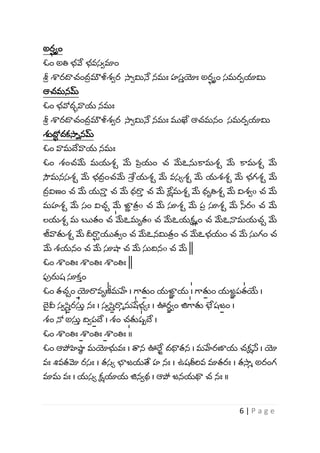 అర్ఘ్యం
ఓం అతి భవే భవస్వమాం
శ్రీ శారదాచంద్రమౌళీశ్వర స్వామినే నమః హస్తయోః అర్ఘ్యం సమర్పయామి
ఆచమనమ్
ఓం భవోద్భవాయ నమః
శ్రీ శారదాచంద్రమౌళీశ్వర స్వామినే నమః ముఖే ఆచమనం సమర్పయామి
శుద్ధోదకస్నానమ్
ఓం వామదేవాయ నమః
ఓం శంచమే మయశ్చ మే ప్రియం చ మేఽనుకామశ్చ మే కామశ్చ మే
సౌమనసశ్చ మే భద్రంచమే శ్రేయశ్చ మే వస్యశ్చ మే యశశ్చ మే భగశ్చ మే
ద్రవిణం చ మే యన్తా చ మే ధర్తా చ మే క్షేమశ్చ మే ధృతిశ్చ మే విశ్వం చ మే
మహశ్చ మే సం విచ్చ మే జ్ఞాత్రం చ మే సూశ్చ మే ప్ర సూశ్చ మే సీరం చ మే
లయశ్చ మ ఋతం చ మేఽమృతం చ మేఽయక్ష్మం చ మేఽనామయచ్చ మే
జీవాతుశ్చ మే దీర్ఘాయుత్వం చ మేఽనమిత్రం చ మేఽభయం చ మే సుగం చ
మే శయనం చ మే సూషా చ మే సుదినం చ మే ||
ఓం శాంతిః శాంతిః శాంతిః ||
పురుష సూక్తం
ఓం తచ్ఛం యోరావృణీమహే । గాతుం యజ్ఞాయ । గాతుం యజ్ఞపతయే ।
దైవీ స్వస్తిరస్తు నః । స్వస్తిర్మానుషేభ్యః । ఊర్ధ్వం జిగాతు భేషజం ।
శం నో అస్తు ద్విపదే । శం చతుష్పదే ।
ఓం శాంతిః శాంతిః శాంతిః ॥
ఓం ఆపోహిష్ఠా మయోభువః । తాన ఊర్జే దధాతన । మహేరణాయ చక్షసే । యో
వః శివతమో రసః । తస్య భాజయతే హ నః । ఉషతీరివ మాతరః । తస్మా అరంగ
మామ వః । యస్య క్షయాయ జిన్వథ । ఆపో జనయథా చ నః ॥
6 | P a g e